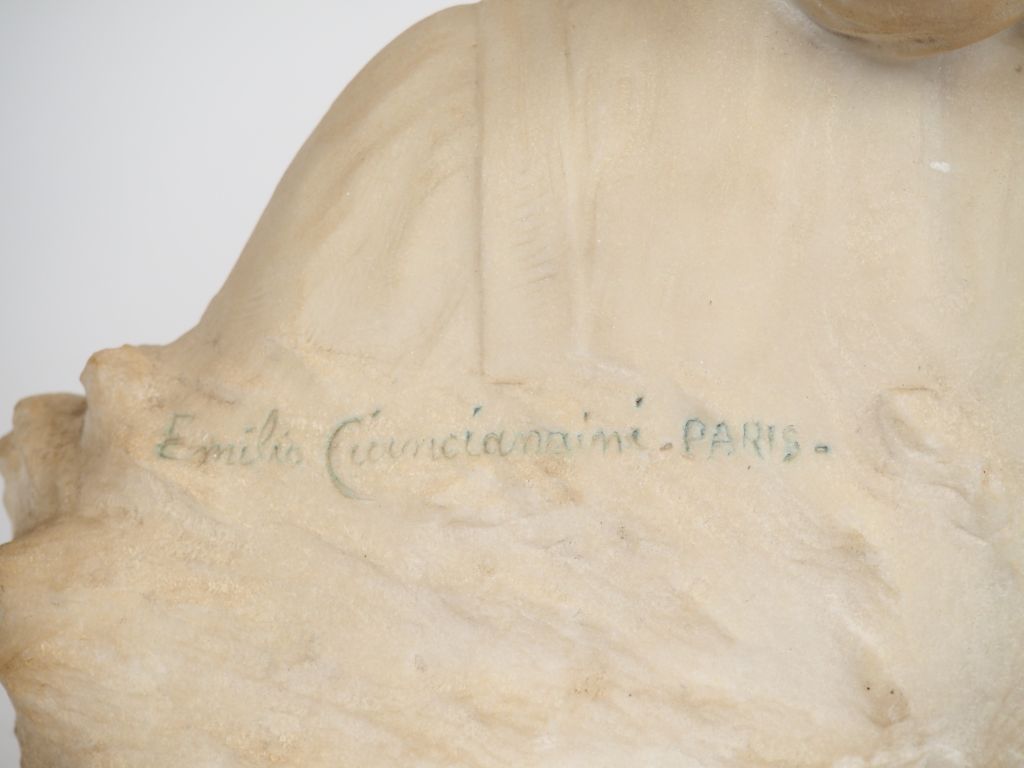 Emilio Ciancianaini - PARIS.